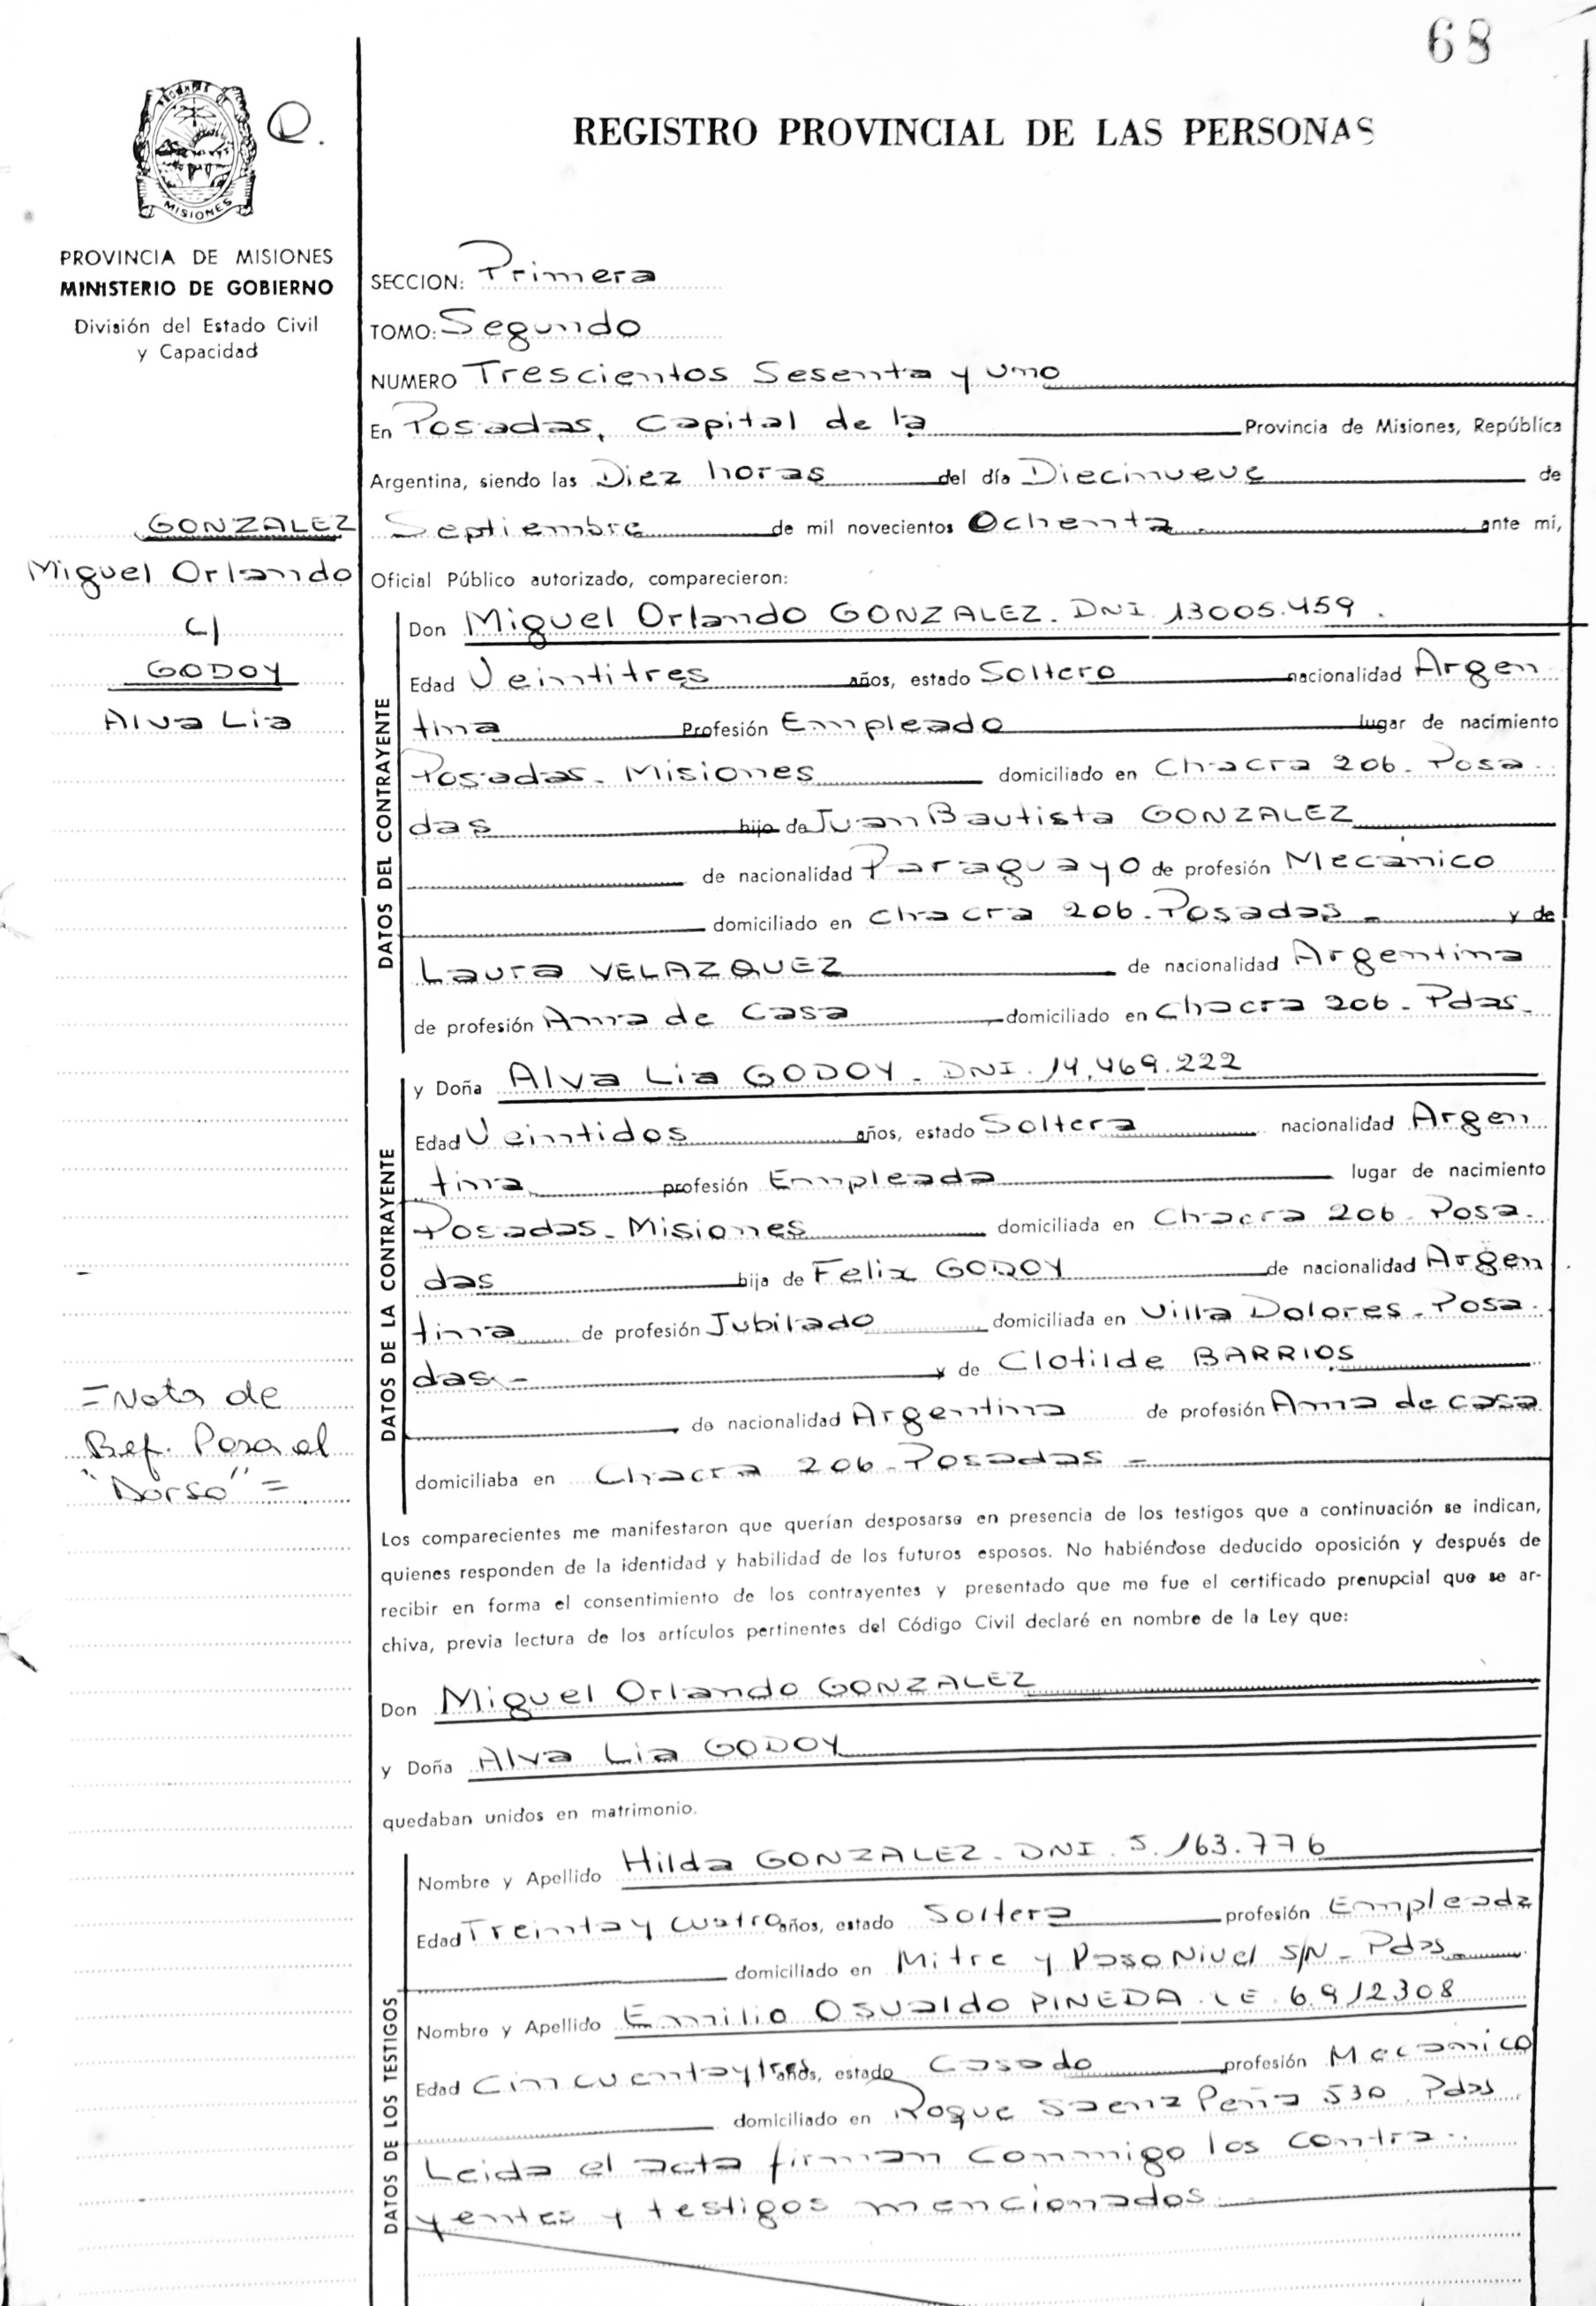 68
Q.
MISIONES
REGISTRO PROVINCIAL DE LAS PERSONAS
PROVINCIA DE MISIONES
MINISTERIO DE GOBIERNO
División del Estado Civil
y Capacidad
GONZALEZ
Miguel Orlando
c/
GODOY
Alva Lia
=Nota de
Ref. Pasa al
"Dorso"=
SECCION: Primera
TOMO: Segundo
NUMERO Trescientos Sesenta y uno
En Posadas, Capital de la Provincia de Misiones, República
Argentina, siendo las Diez horas del día Diecinueve de
Septiembre de mil novecientos Ochenta.- ante mí,
Oficial Público autorizado, comparecieron:
DATOS DEL CONTRAYENTE
Don Miguel Orlando GONZALEZ. DNI 13005.459.
Edad Veintitres años, estado Soltero nacionalidad Argen
tina Profesión Empleado lugar de nacimiento
Posadas. Misiones domiciliado en Chacra 206. Posa.
das hijo de Juan Bautista GONZALEZ
de nacionalidad Paraguayo de profesión Mecánico
domiciliado en Chacra 206. Posadas - y de
Laura VELAZQUEZ de nacionalidad Argentina
de profesión Ama de Casa domiciliado en Chacra 206. Pdas.
DATOS DE LA CONTRAYENTE
y Doña Alva Lia GODOY. DNI. 14.469.222
Edad Veintidos años, estado Soltera nacionalidad Argen
tina profesión Empleada lugar de nacimiento
Posadas. Misiones domiciliada en Chacra 206. Posa.
das hija de Felix GODOY de nacionalidad Argen
tina de profesión Jubilado domiciliada en Villa Dolores. Posa.
das.- y de Clotilde BARRIOS
de nacionalidad Argentina de profesión Ama de casa
domiciliaba en Chacra 206. Posadas -
Los comparecientes me manifestaron que querían desposarse en presencia de los testigos que a continuación se indican,
quienes responden de la identidad y habilidad de los futuros esposos. No habiéndose deducido oposición y después de
recibir en forma el consentimiento de los contrayentes y presentado que me fue el certificado prenupcial que se ar-
chiva, previa lectura de los artículos pertinentes del Código Civil declaré en nombre de la Ley que:
Don Miguel Orlando GONZALEZ
y Doña Alva Lia GODOY
quedaban unidos en matrimonio.
DATOS DE LOS TESTIGOS
Nombre y Apellido Hilda GONZALEZ. DNI. 5.163.776
Edad Treinta y cuatro años, estado Soltera profesión Empleada
domiciliado en Mitre y Paso Nivel S/N - Pdas
Nombre y Apellido Emilio Osvaldo PINEDA. LE. 6.912308
Edad Cincuenta y tres años, estado Casado profesión Mecanico
domiciliado en Roque Saenz Peña 530. Pdas
Leida el acta firman conmigo los contra.
yentes y testigos mencionados.